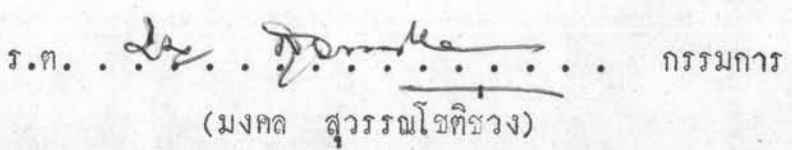 ร.ต. . . . . . . . . . . . . . . . . . กรรมการ
(มงคล สุวรรณโชติช่วง)